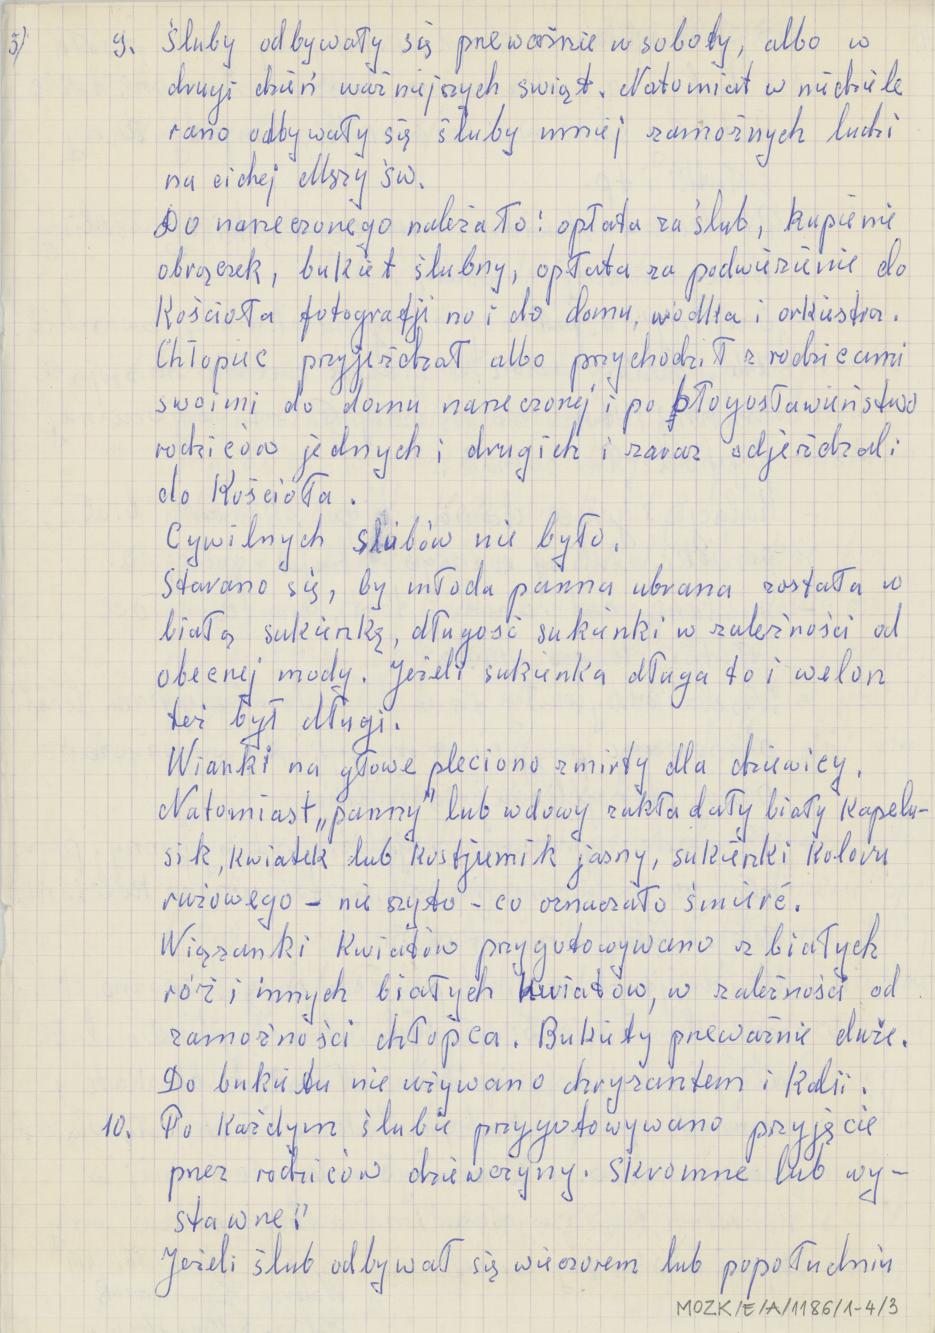 3)
9. Śluby odbywały się przeważnie w soboty, albo w
drugi dzień ważniejszych swiąt. Natomiat w niedziele
rano odbywały się śluby mniej zamożnych ludzi
na cichej Mszy św.
Do narzeczonego należało: opłata za ślub, kupienie
obrączek, bukiet ślubny, opłata za podwiezienie do
Kościoła fotografji no i do domu, wódka i orkiestra.
Chłopiec przyjeżdzał albo przychodził z rodzicami
swoimi do domu narzeczonej i po błogosławieństwo
rodziców jednych i drugich i zaraz odjeżdzali
do Kościoła.
Cywilnych slubów nie było.
Starano się, by młoda panna ubrana została w
białą sukienkę, długość sukienki w zależności od
obecnej mody. Jeżeli sukienka długa to i welon
też był długi.
Wianki na głowe pleciono z mirty dla dziewicy.
Natomiast „panny" lub wdowy zakładały biały Kapelu-
sik, Kwiatek lub Kostjumik jasny, sukienki Koloru
rużowego - nie szyto - co oznaczało śmierć.
Wiązanki Kwiatów przygotowywano z białych
róż i innych białych kwiatów, w zależności od
zamożności chłopca. Bukiety przeważnie duże.
Do bukietu nie używano chryzantem i Kalii.
10. Po Każdym ślubie przygotowywano przyjęcie
przez rodziców dziewczyny. Skromne lub wy-
stawne!
Jeżeli ślub odbywał się wieczorem lub popołudniu
MOZK/E/A/1186/1-4/3